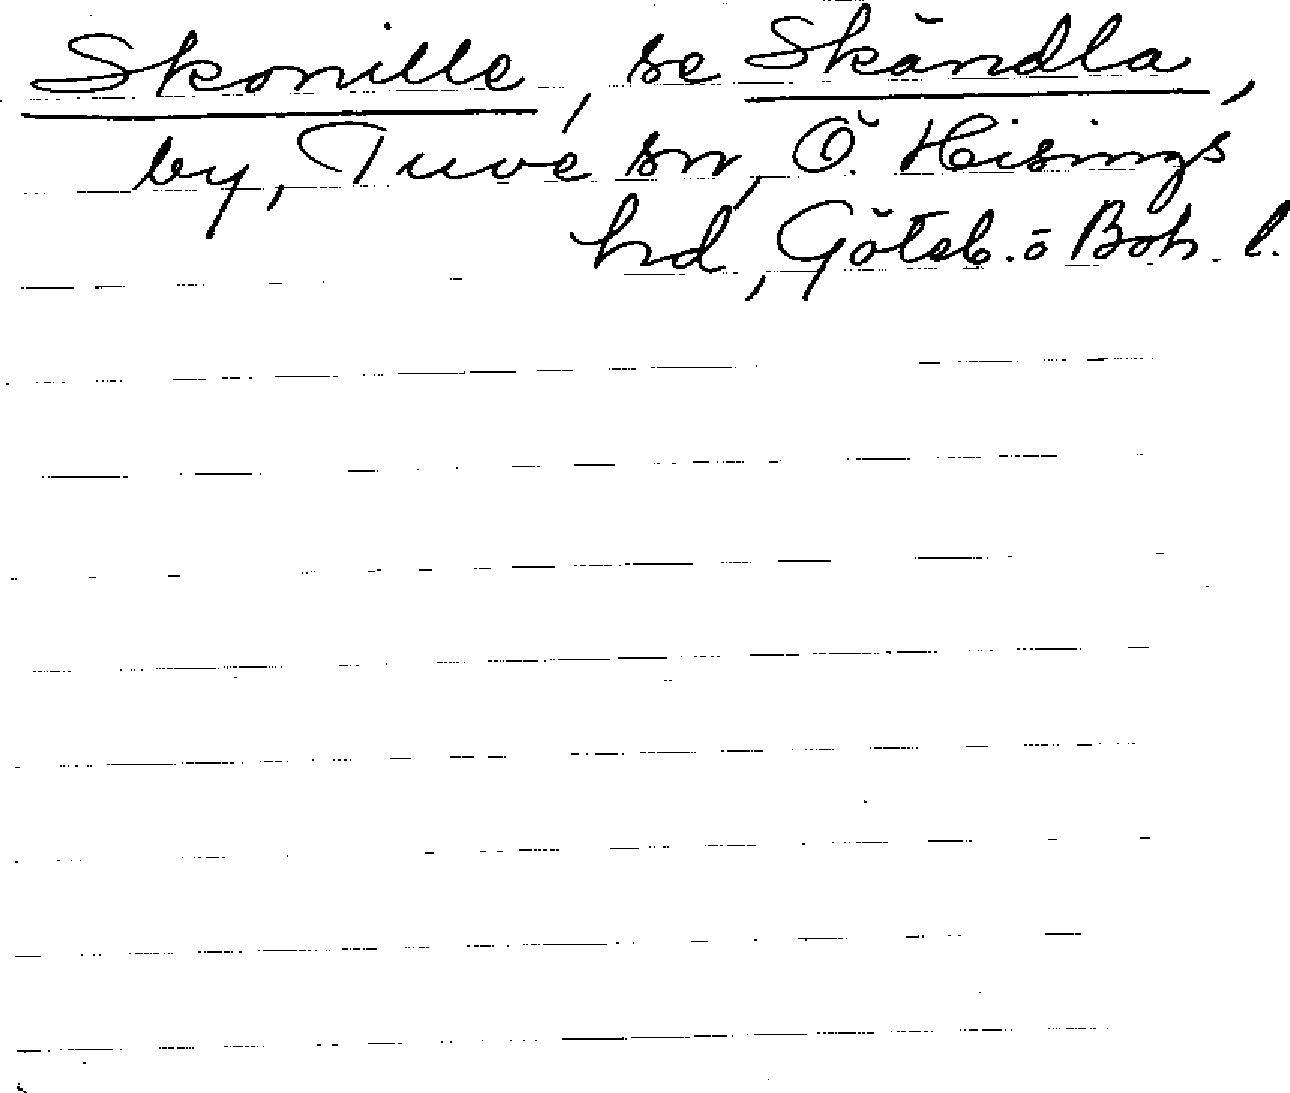 Skonille, se Skändla,
by, Tuve sn, Ö. Hisings
hd, Göteb. o Boh. l.